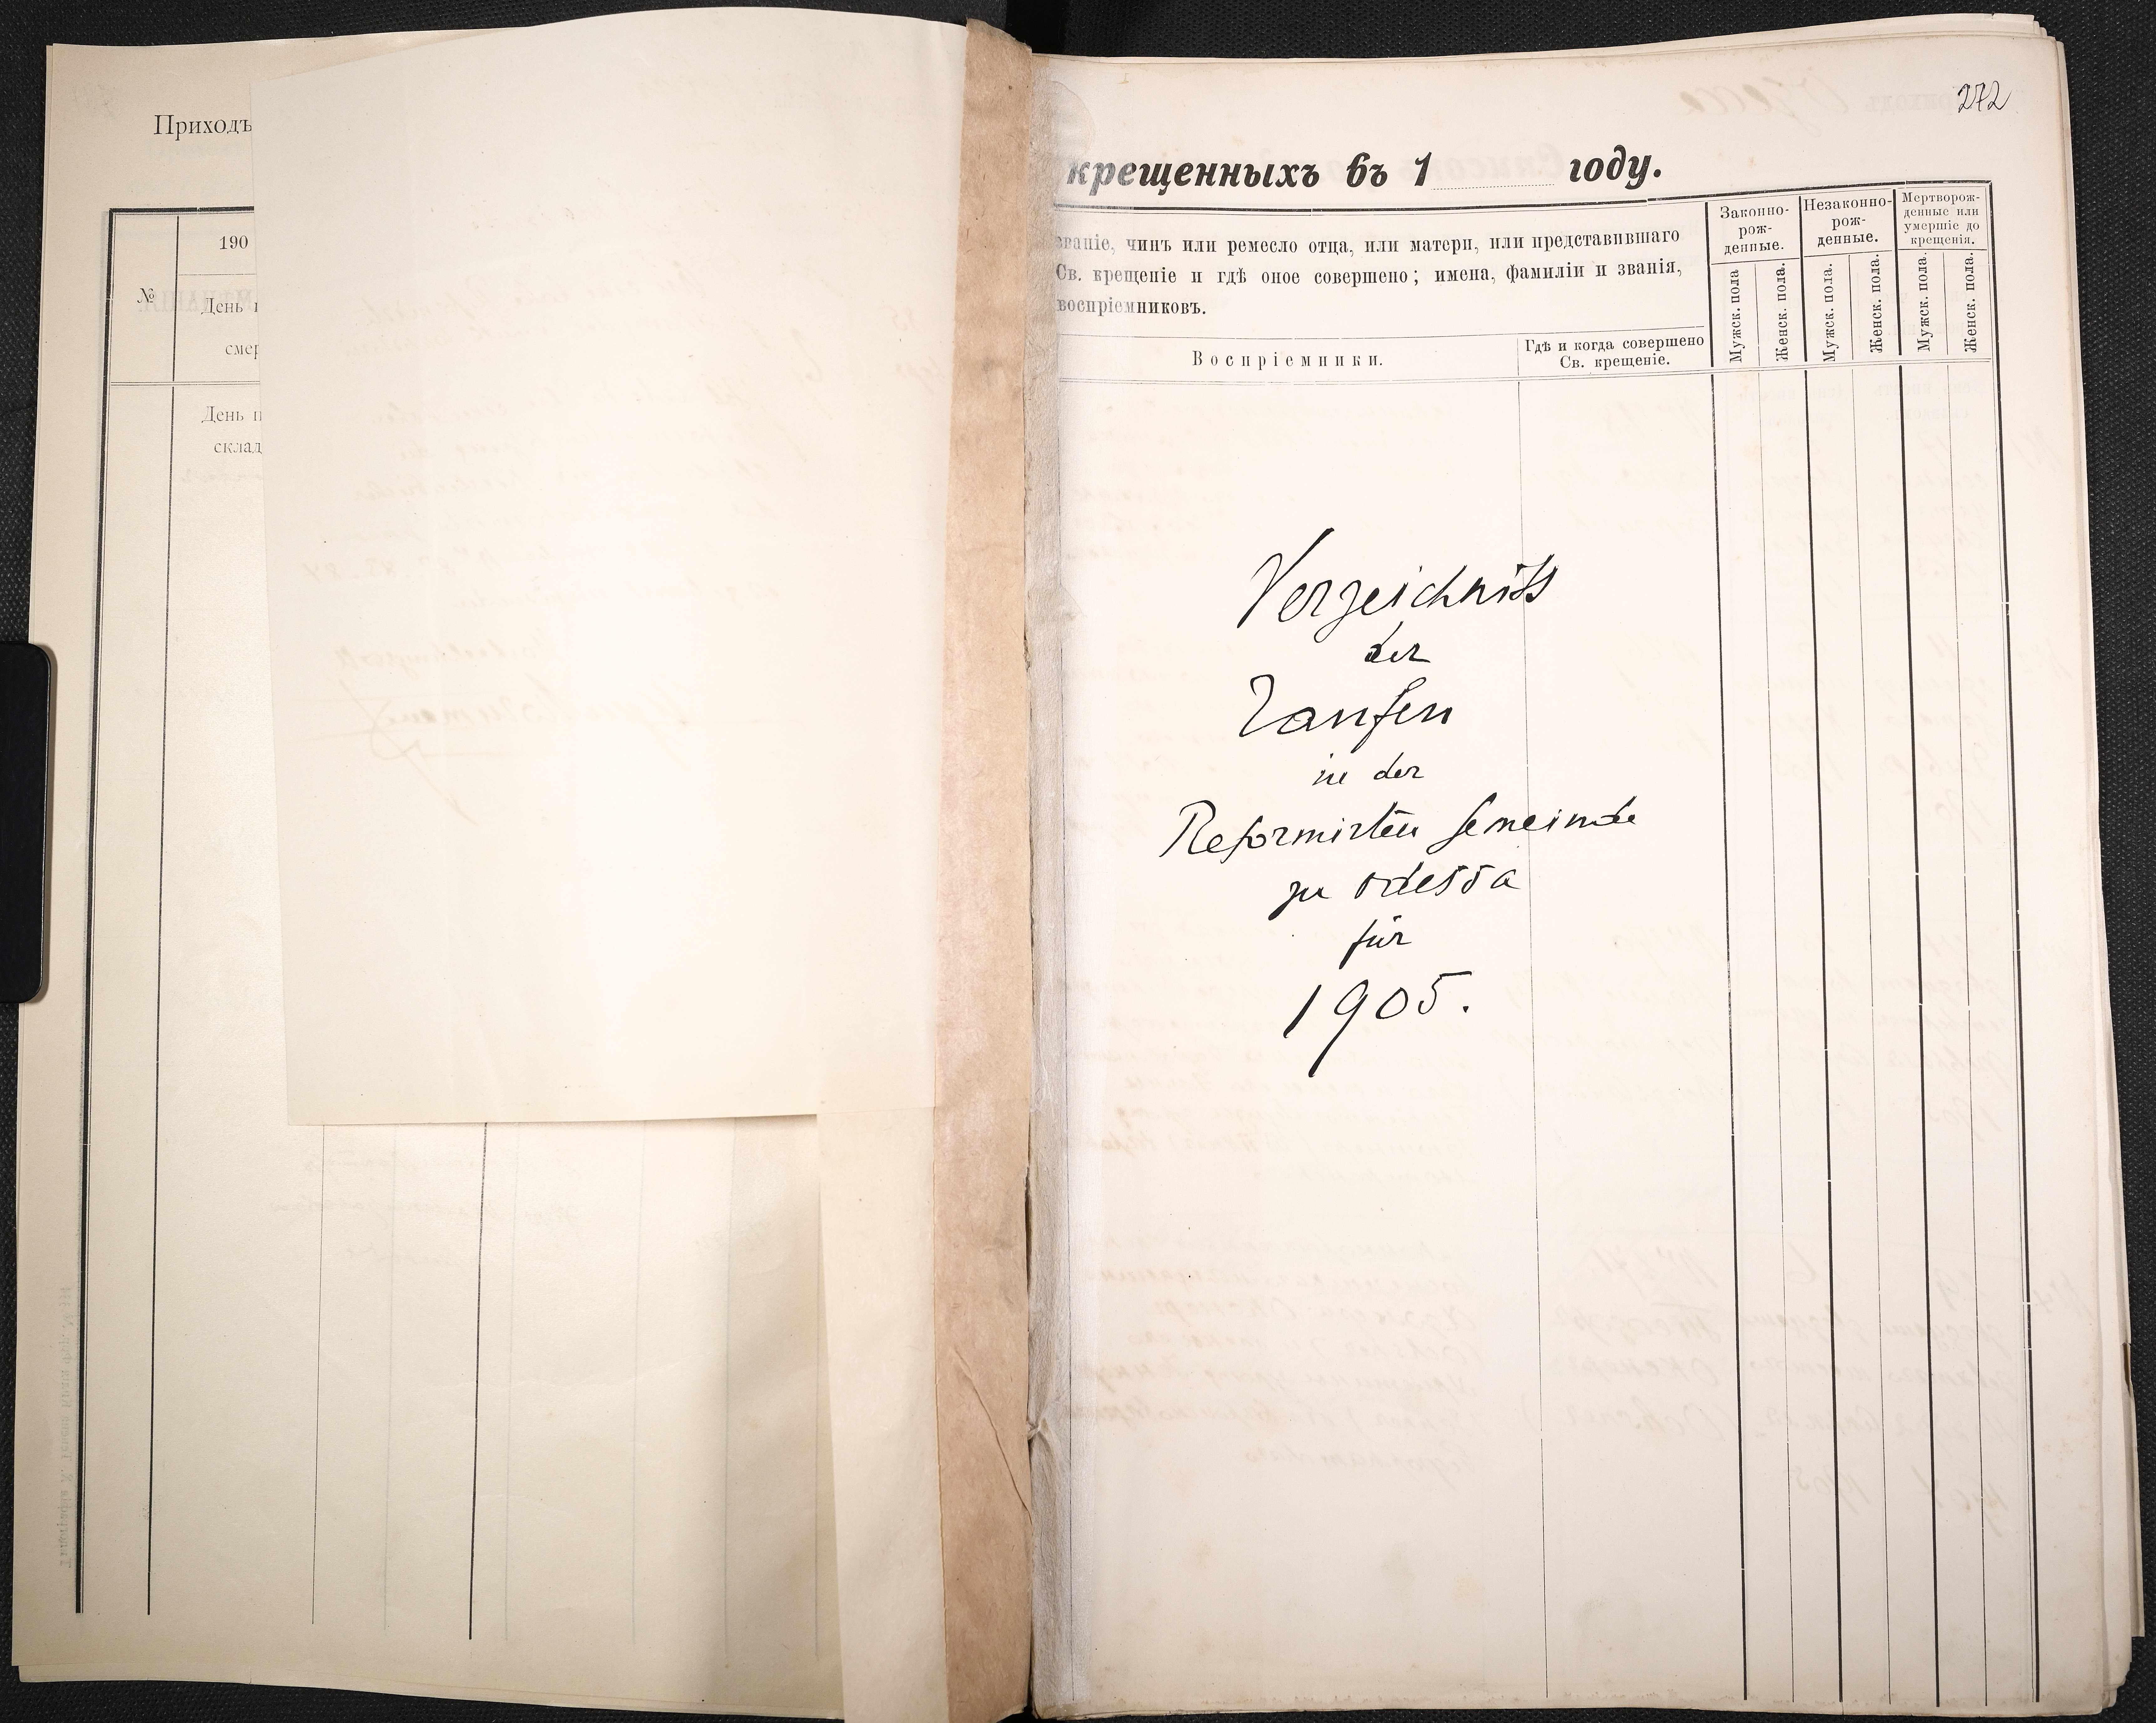 Приходъ
190
№
День
смер
День п
склад
272
крещенныхъ въ 1 году.
званіе, чинъ или ремесло отца, или матери, или представившаго
Св. крещеніе и гдѣ оное совершено; имена, фамиліи и званія,
воспріемниковъ.
Воспріемники.
Гдѣ и когда совершено
Св. крещеніе.
Законно-
рож-
денные.
Незаконно-
рож-
денные.
Мертворож-
денные или
умершіе до
крещенія.
Мужск. пола
Женск. пола.
Мужск. пола.
Женск. пола.
Мужск. пола.
Женск. пола.
Verzeichniss
der
Taufen
in der
Reformirten Gemeinde
zu Odessa
für
1905.